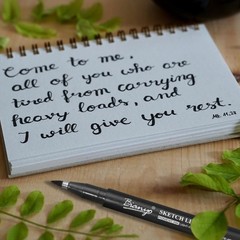 Come to me,
all of you who are
tired from carrying
heavy loads, and
I will give you rest.
Mt. 11,28
Bianyo
SKETCH LI